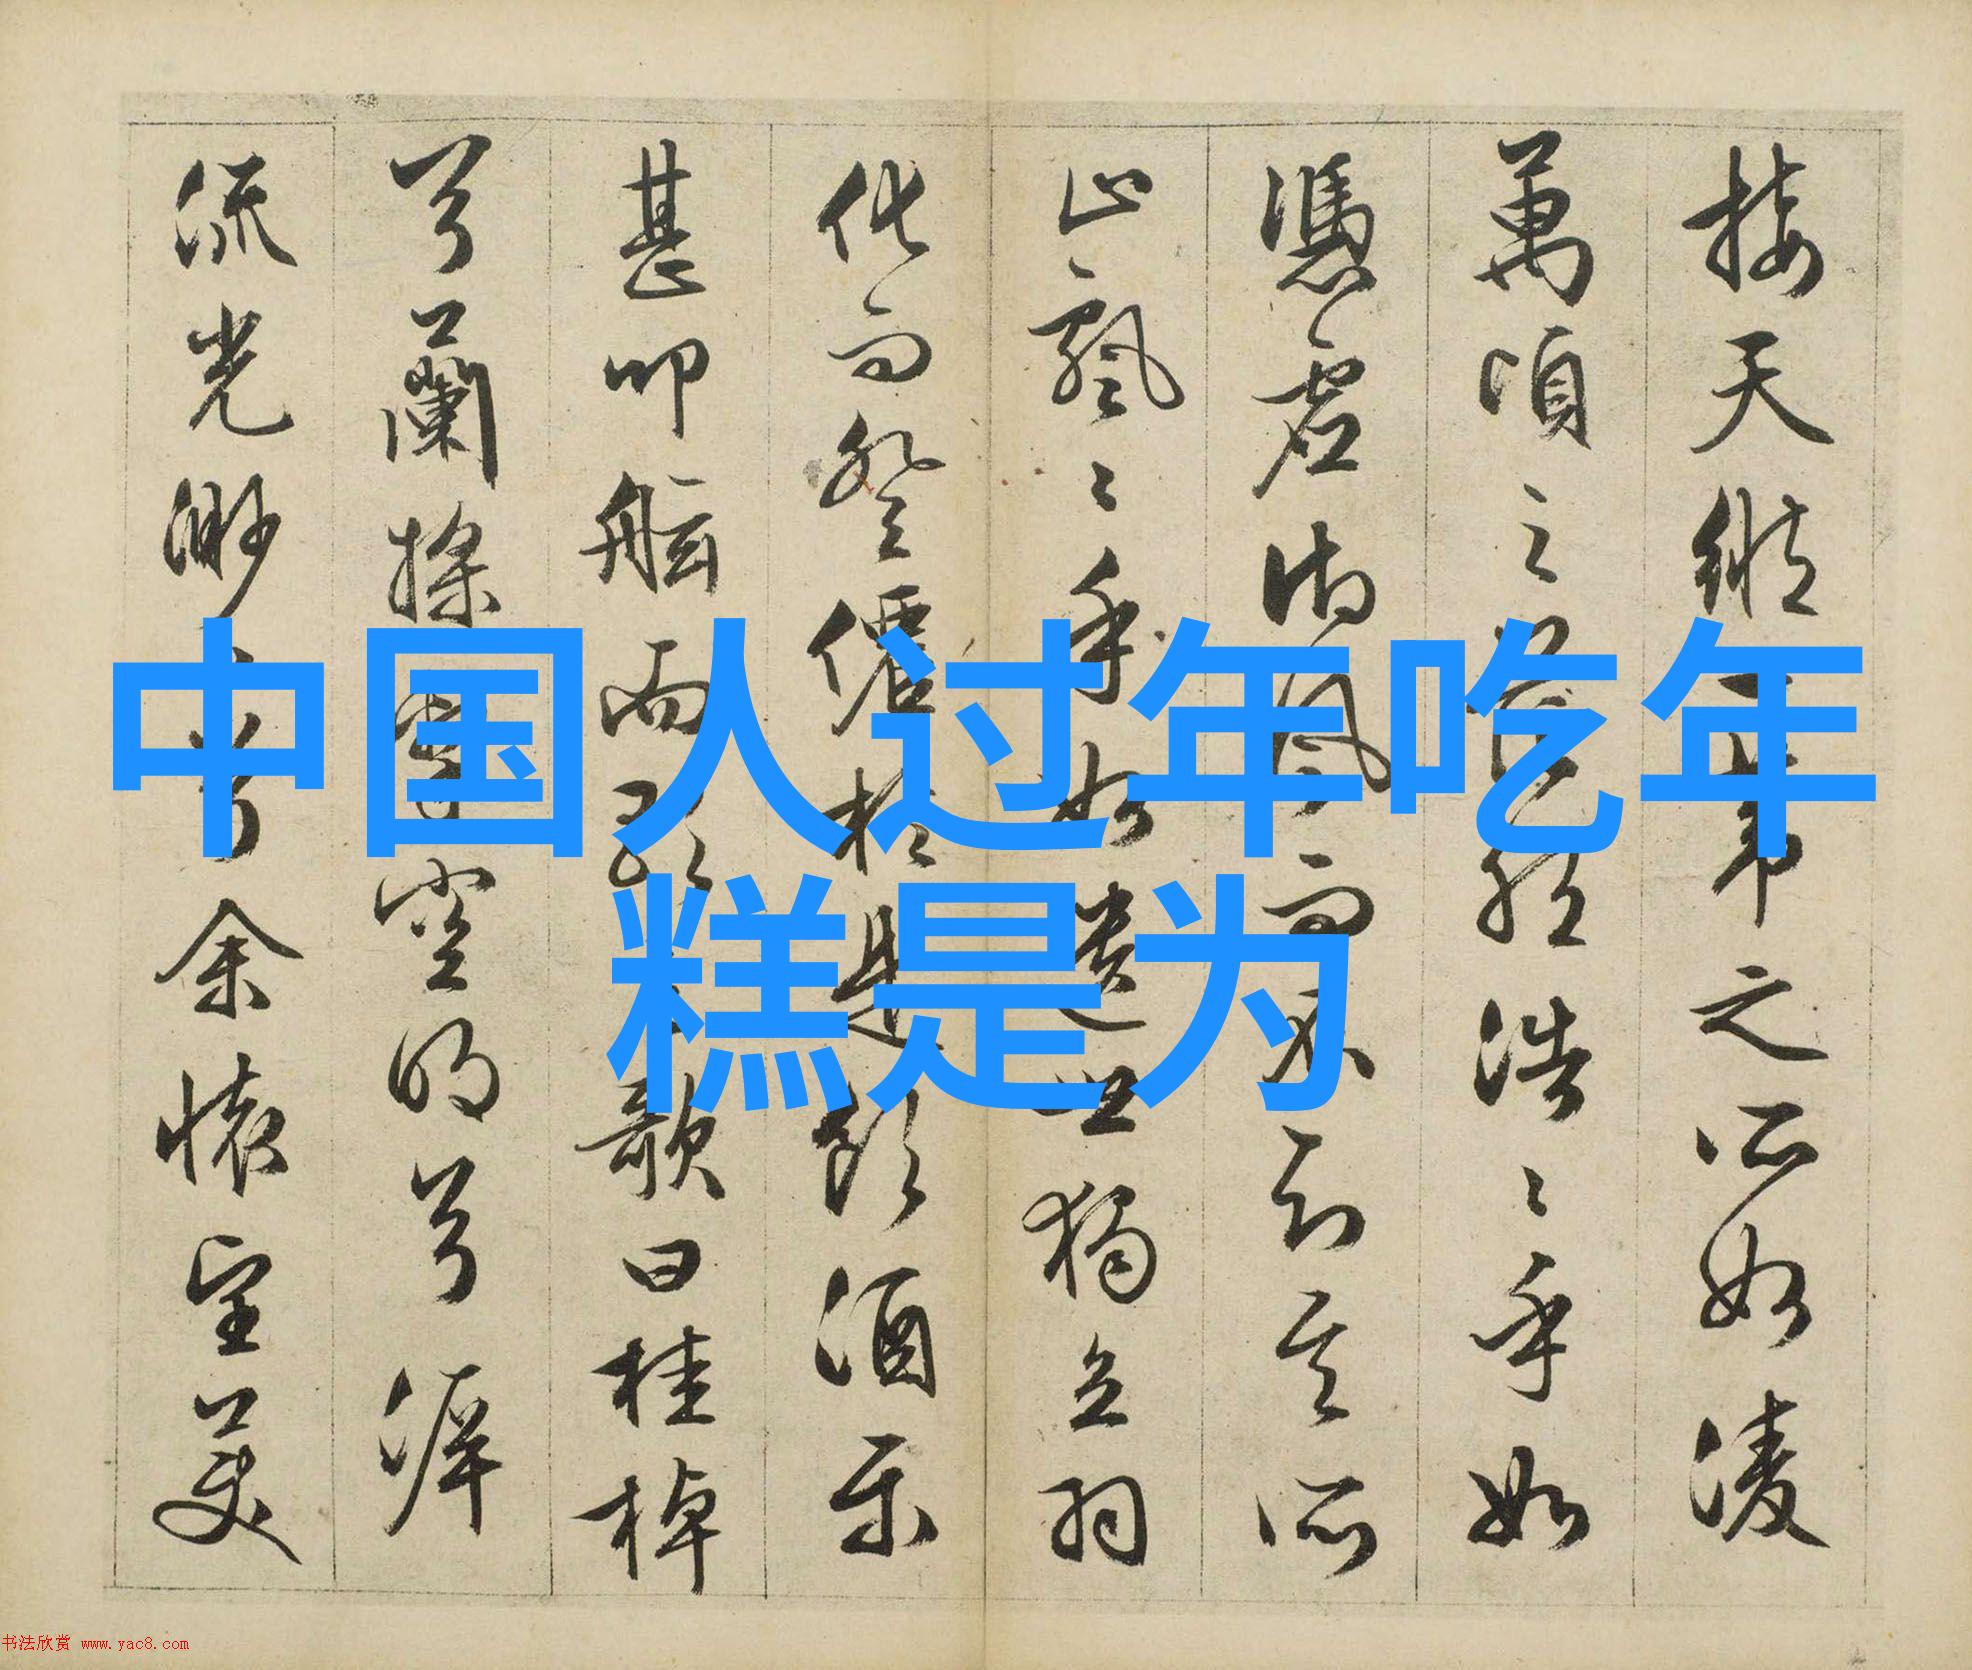 中国人过年吃年
糕是为
接天縱一葦之所如淩
萬頃之茫然浩〻乎如
憑虛御風而不知其所
止飄〻乎如遺世獨立羽
化而登僊於是飲酒樂
甚叩舷而歌之歌曰桂棹
兮蘭槳擊空明兮泝
流光渺〻兮余懷望美
书法欣赏 www.yac8.com